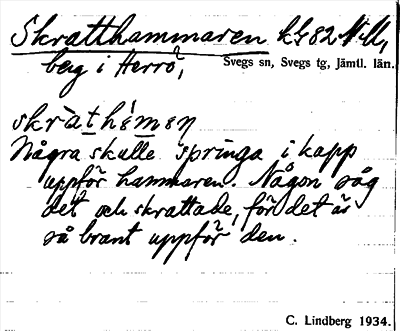 Skratthammaren
berg i Herrö,
Svegs sn, Svegs tg, Jämtl. län.
Några skulle springa i kapp
uppför hammaren. Någon såg
det och skrattade, för det är
så brant uppför den.
C. Lindberg 1934.